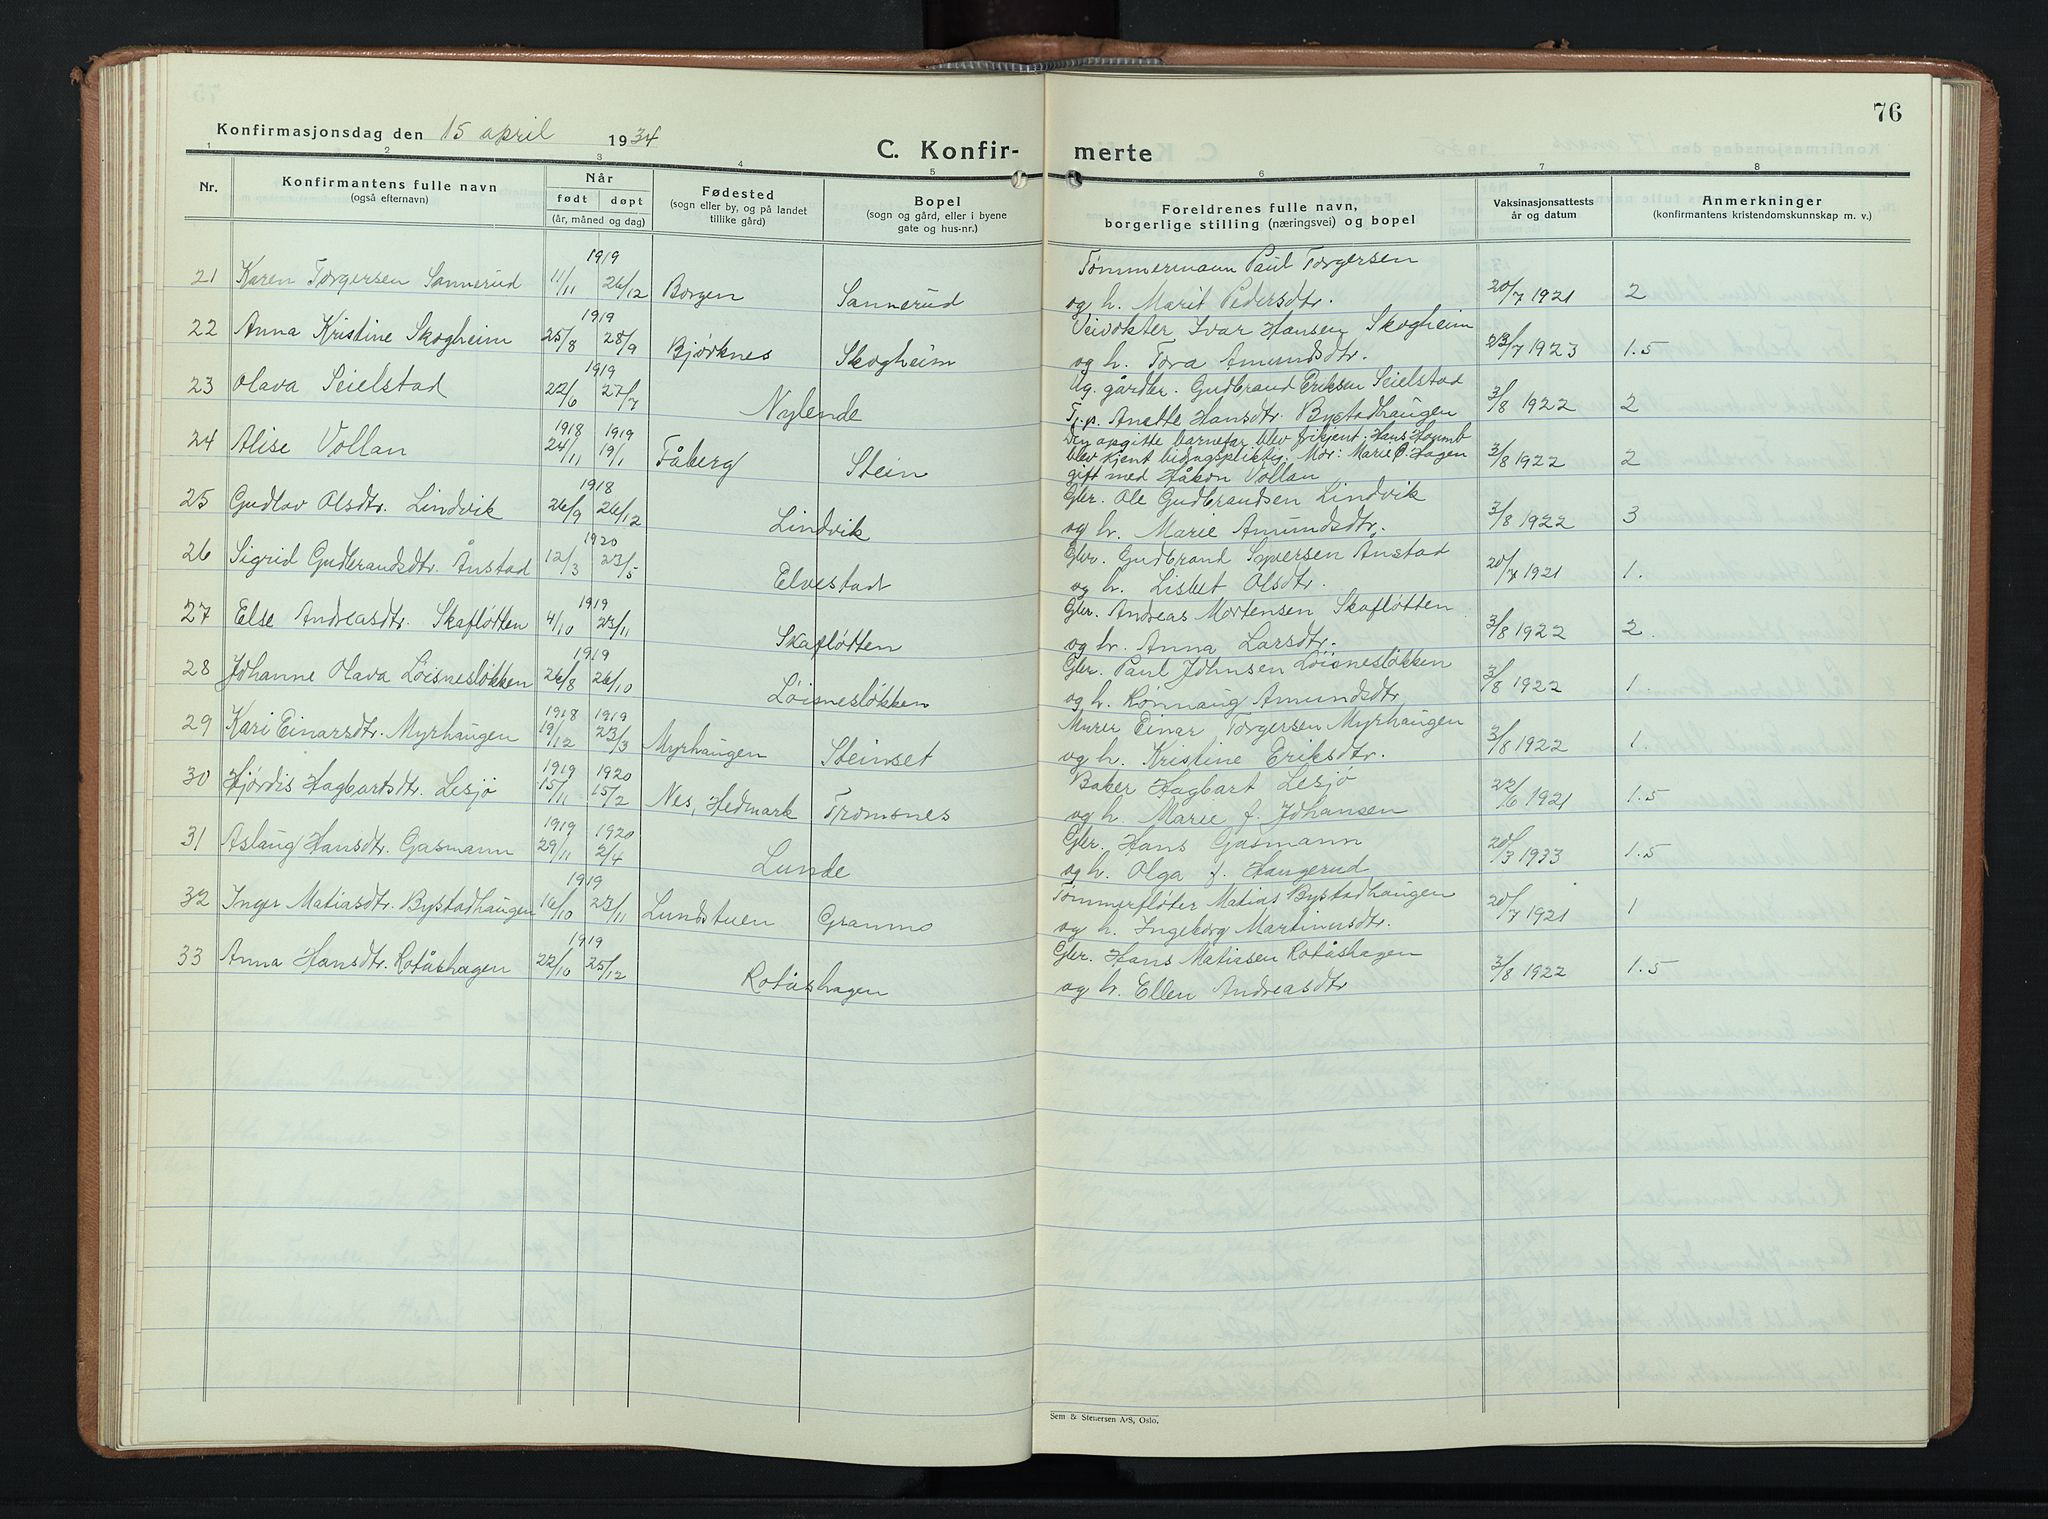 76
Konfirmasjonsdag den 15 april 1934
C. Konfir- merte
1 2 3 4 5 6 7 8
Nr.
Konfirmantens fulle navn
(også efternavn)
Når
født døpt
(år, måned og dag)
Fødested
(sogn eller by, og på landet
tillike gård)
Bopel
(sogn og gård, eller i byene
gate og hus-nr.)
Foreldrenes fulle navn,
borgerlige stilling (næringsvei) og bopel
Vaksinasjonsattests
år og datum
Anmerkninger
(konfirmantens kristendomskunnskap m. v.)
1919 Tømmermann Paul Torgersen
21 Karen Torgersen Sannerud 11/11 26/12 Borgen Sannerud 20/7 1921 2
og h. Marit Pedersdtr.
1919 Veivokter Ivar Hansen Skogheim
22 Anna Kristine Skogheim 25/8 28/9 Bjørknes Skogheim 23/7 1923 1.5
og h. Tora Amundsdtr.
1919 Ug. gårdbr. Gudbrand Eriksen Seielstad
23 Olava Seielstad 22/6 27/7 Nylende 3/8 1922 2
T.p. Anette Hansdtr. Bystadhaugen
1918 1919 Den opgitte barnefar blev frikjent. Hans Haumb
24 Alise Vollan 24/11 19/1 Fåberg Stein blev kjent bidragspliktig. Mor: Marie O. Hagen 3/8 1922 2
gift med Håkon Vollan
1918 Gbr. Ole Gudbrandsen Lindvik
25 Gudlov Olsdtr. Lindvik 26/9 26/12 Lindvik 3/8 1922 3
og h. Marie Amundsdtr.
1920 Gbr. Gudbrand Syversen Ånstad
26 Sigrid Gudbrandsdtr. Ånstad 12/3 23/5 Elvestad 20/7 1921 1.
og h. Lisbet Olsdtr.
1919 Gbr. Andreas Mortensen Skafløtten
27 Else Andreasdtr. Skafløtten 4/10 23/11 Skafløtten 3/8 1922 2.
og h. Anna Larsdtr.
1919 Gbr. Paul Johnsen Løisnesløkken
28 Johanne Olava Løisnesløkken 26/8 26/10 Løisnesløkken 3/8 1922 1.
og h. Rønnaug Amundsdtr.
1918 1919 Murer Einar Torgersen Myrhaugen
29 Kari Einarsdtr. Myrhaugen 19/12 23/3 Myrhaugen Steinset 3/8 1922 1.
og h. Kristine Eriksdtr.
1919 1920 Baker Hagbart Lesjø
30 Hjørdis Hagbartsdtr. Lesjø 15/11 15/2 Nes, Hedmark Tromsnes 22/6 1921 1.5
og h. Marie f. Johansen
1919 1920 Gbr. Hans Gasmann
31 Aslaug Hansdtr. Gasmann 29/11 2/4 Lunde 20/3 1933 1.5
og h. Olga f. Haugerud
1919 Tømmerfløter Matias Bystadhaugen
32 Inger Matiasdtr. Bystadhaugen 16/10 23/11 Lundstuen Granmo 20/7 1921 1
og h. Ingeborg Martinusdtr.
1919 Gbr. Hans Matiasen Rotåshagen
33 Anna Hansdtr. Rotåshagen 22/10 25/12 Rotåshagen 3/8 1922 1.5
og h. Ellen Andreasdtr
Sem & Stenersen A/S, Oslo.